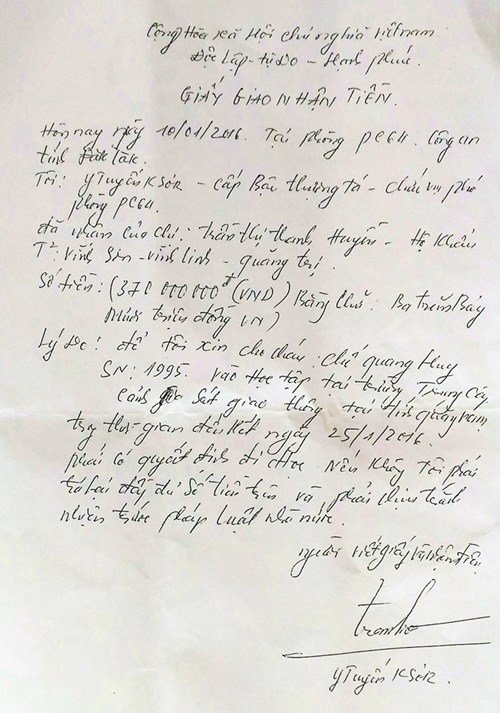 Cộng Hòa xã Hội chủ nghĩa Việt nam
Độc Lập - tự Do - Hạnh phúc.
GIẤY GIAO NHẬN TIỀN.
Hôm nay ngày 10/01/2016. Tại phòng PC64. Công an
tỉnh Đắk Lắk.
Tôi: Y Tuyến KSOR - cấp Bậc thượng tá - chức vụ phó
phòng PC64.
đã nhận của chị: trần thị thanh Huyền - Hộ khẩu
T²: Vĩnh Sơn - vĩnh linh - quảng trị.
Số tiền: (370 000 000đ (VND) Bằng chữ: Ba trăm Bảy
Mươi triệu đồng VN)
Lý Do: để tôi xin cho cháu: Chế quang Huy
SN: 1995. vào Học tập tại trường Trung cấp
Cảnh sát giao thông tại tỉnh quảng nam
thời gian đến hết ngày 25/1/2016.
phải có quyết định đi Học. Nếu không tôi phải
trả lại đầy đủ số tiền trên và phải chịu trách
nhiệm trước pháp luật nhà nước.
người viết giấy và nhận tiền
Y Tuyến KSOR.